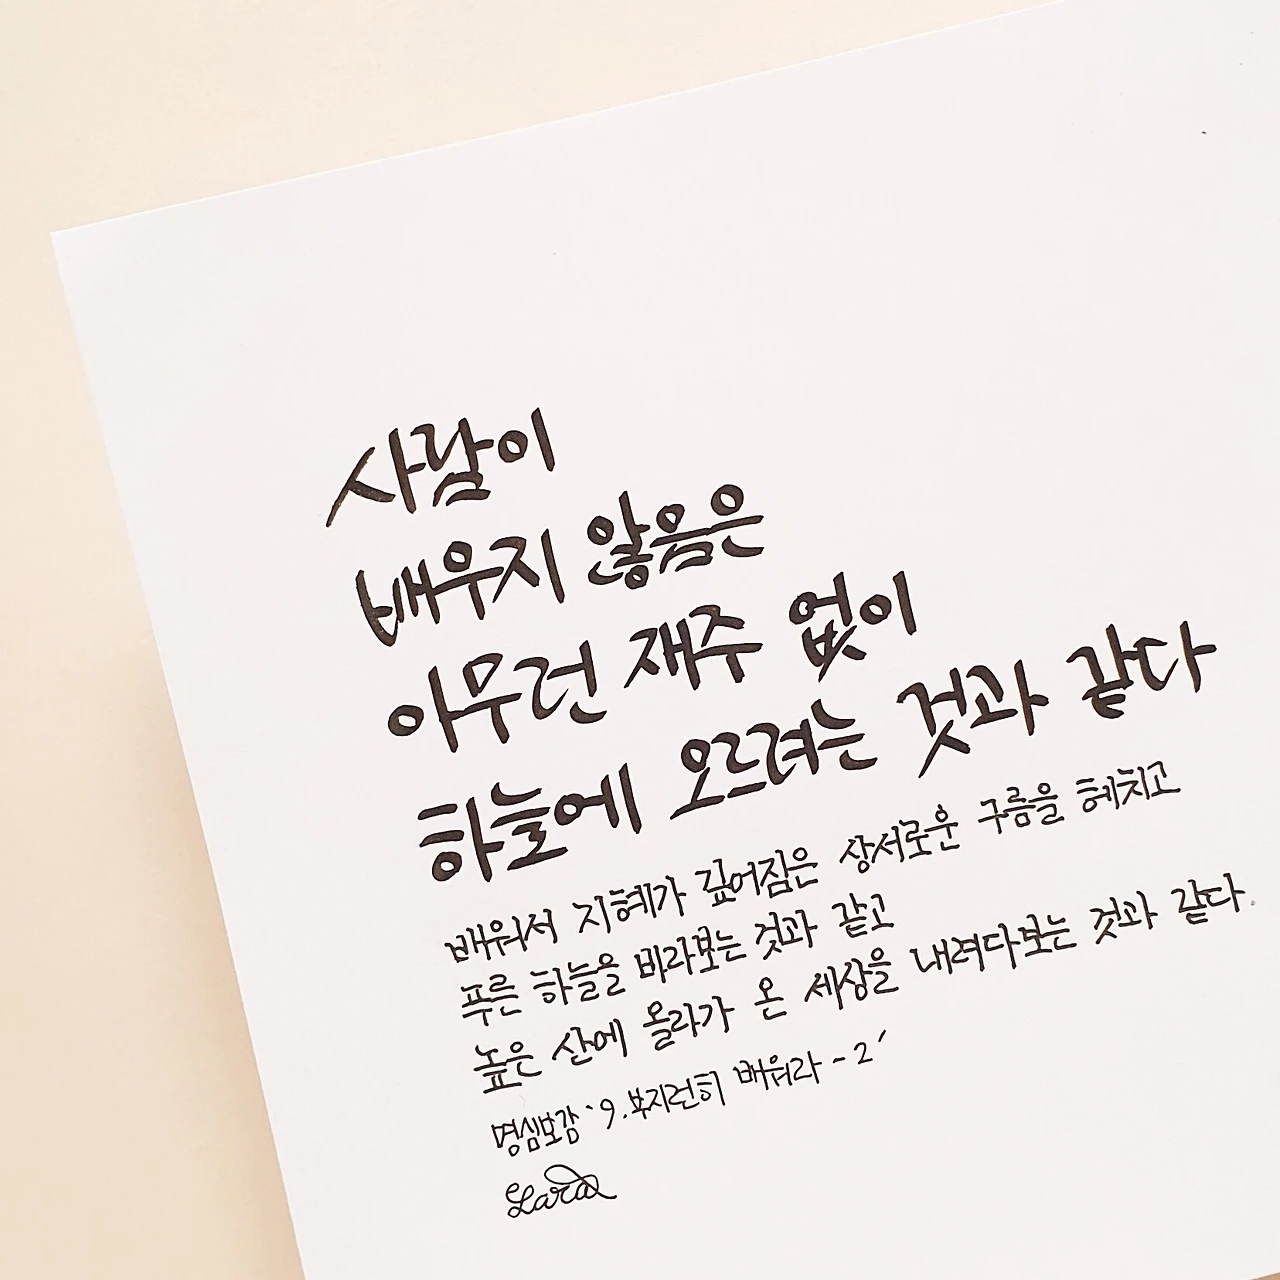 사람이
배우지 않음은
아무런 재주 없이
하늘에 오르려는 것과 같다
배워서 지혜가 깊어짐은 상서로운 구름을 헤치고
푸른 하늘을 바라보는 것과 같고
높은 산에 올라가 온 세상을 내려다보는 것과 같다.
명심보감 '9. 부지런히 배워라 - 2'
Lara